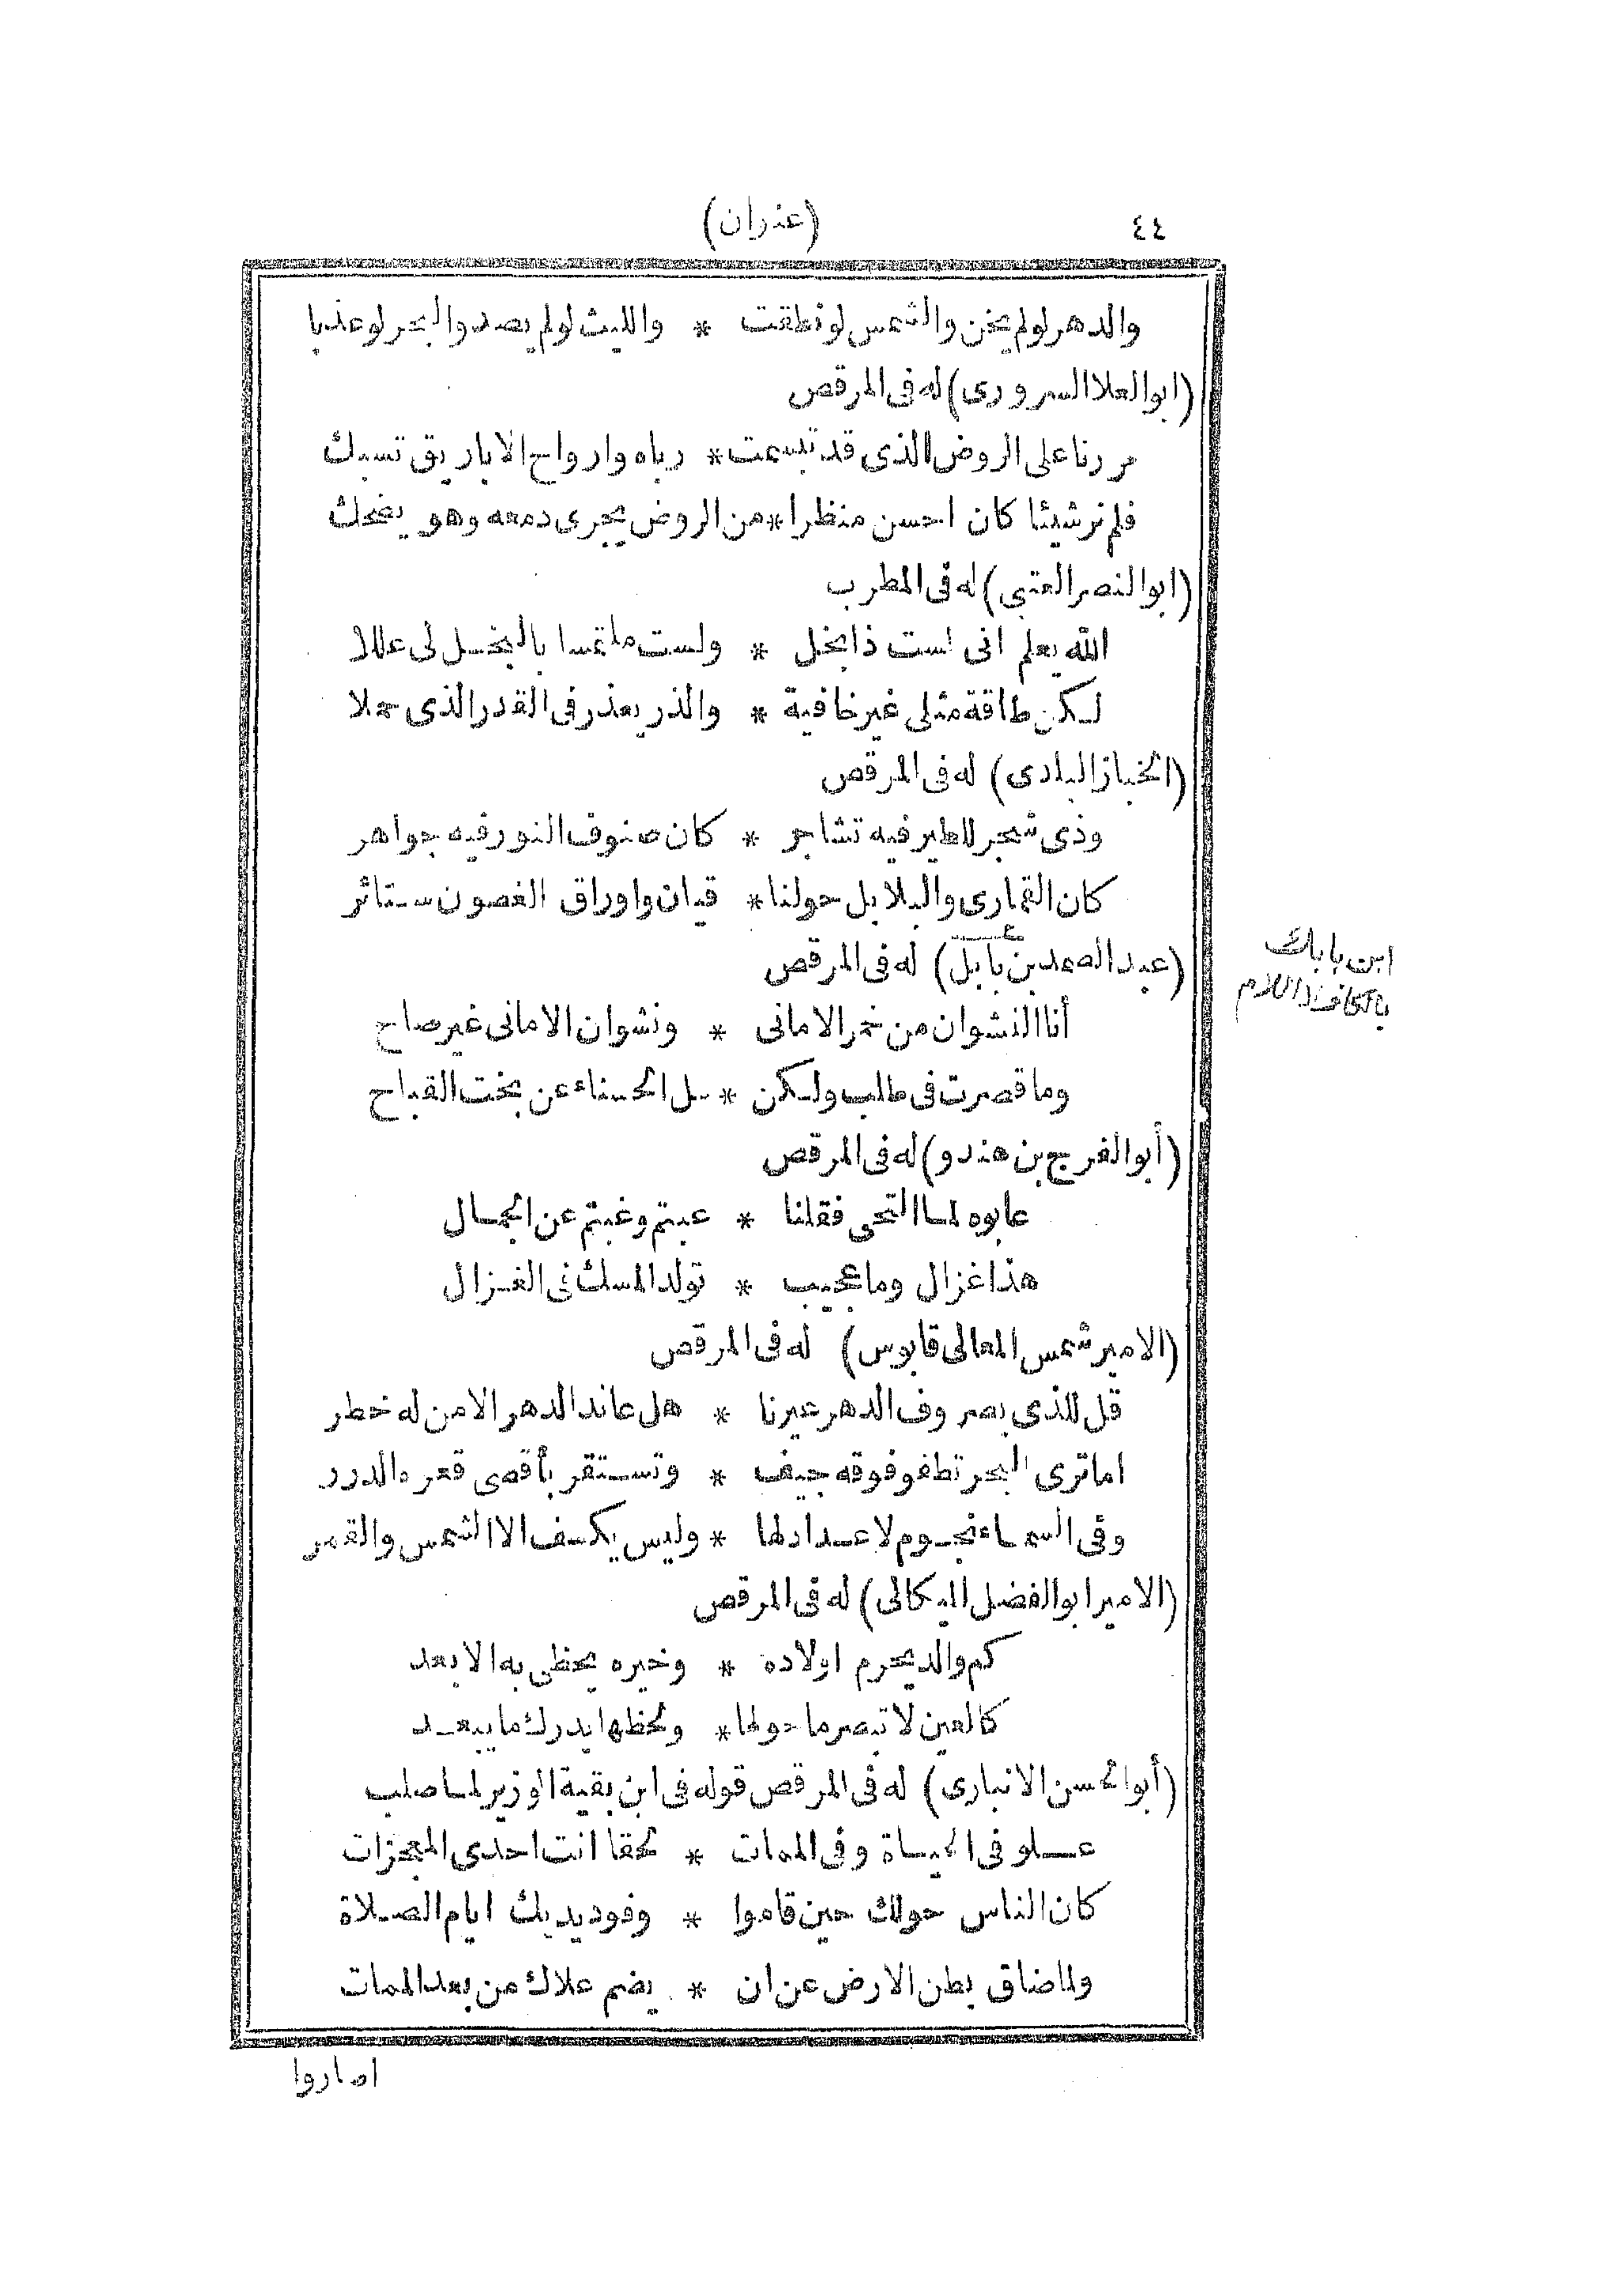 ٤٤
(عنران)
والدهر لولم يخن والشمس لو نطقت * والليث لولم يصد والبحر لو عذبا
(ابو العلا السرورى) له فى المرقص
مررنا على الروض الذى قد تبسمت * رباه وارواح الاباريق تسبك
فلم نر شيئا كان احسن منظرا * من الروض يجرى دمعه وهو يضحك
(ابو النصر العتبى) له فى المطرب
الله يعلم انى لست ذا بخل * ولست ملتمسا بالبخل لى عللا
لكن طاقة مثلى غير خافية * والذر يعذر فى القدر الذى حملا
(الخباز البلدى) له فى المرقص
وذى شجر للطير فيه تشاجر * كان صنوف النور فيه جواهر
كان القمارى والبلابل حولنا * قيان واوراق الغصون ستائر
(عبد الصمد بن بابل) له فى المرقص
ابن بابك
بالكاف لا اللام
أنا النشوان من خمر الامانى * ونشوان الامانى غير صاح
وما قصرت فى طلب ولكن * سل الحسناء عن بخت القباح
(أبو الفرج بن هندو) له فى المرقص
عابوه لما التحى فقلنا * عبتم وغبتم عن الجمال
هذا غزال وما عجيب * تولد المسك فى الغزال
(الامير شمس المعالى قابوس) له فى المرقص
قل للذى بصروف الدهر عيرنا * هل عاند الدهر الا من له خطر
اما ترى البحر تطفو فوقه جيف * وتستقر بأقصى قعره الدرر
وفى السماء نجوم لا عداد لها * وليس يكسف الا الشمس والقمر
(الامير ابو الفضل الميكالى) له فى المرقص
كم والد يحرم اولاده * وخيره يحظى به الابعد
كالعين لا تبصر ما حولها * ولحظها يدرك ما يبعد
(أبو الحسن الانبارى) له فى المرقص قوله فى ابن بقية الوزير لما صلب
علو فى الحياة وفى الممات * لحقا انت احدى المعجزات
كان الناس حولك حين قاموا * وفود يديك ايام الصلاة
ولما ضاق بطن الارض عن ان * يضم علاك من بعد الممات
اصاروا